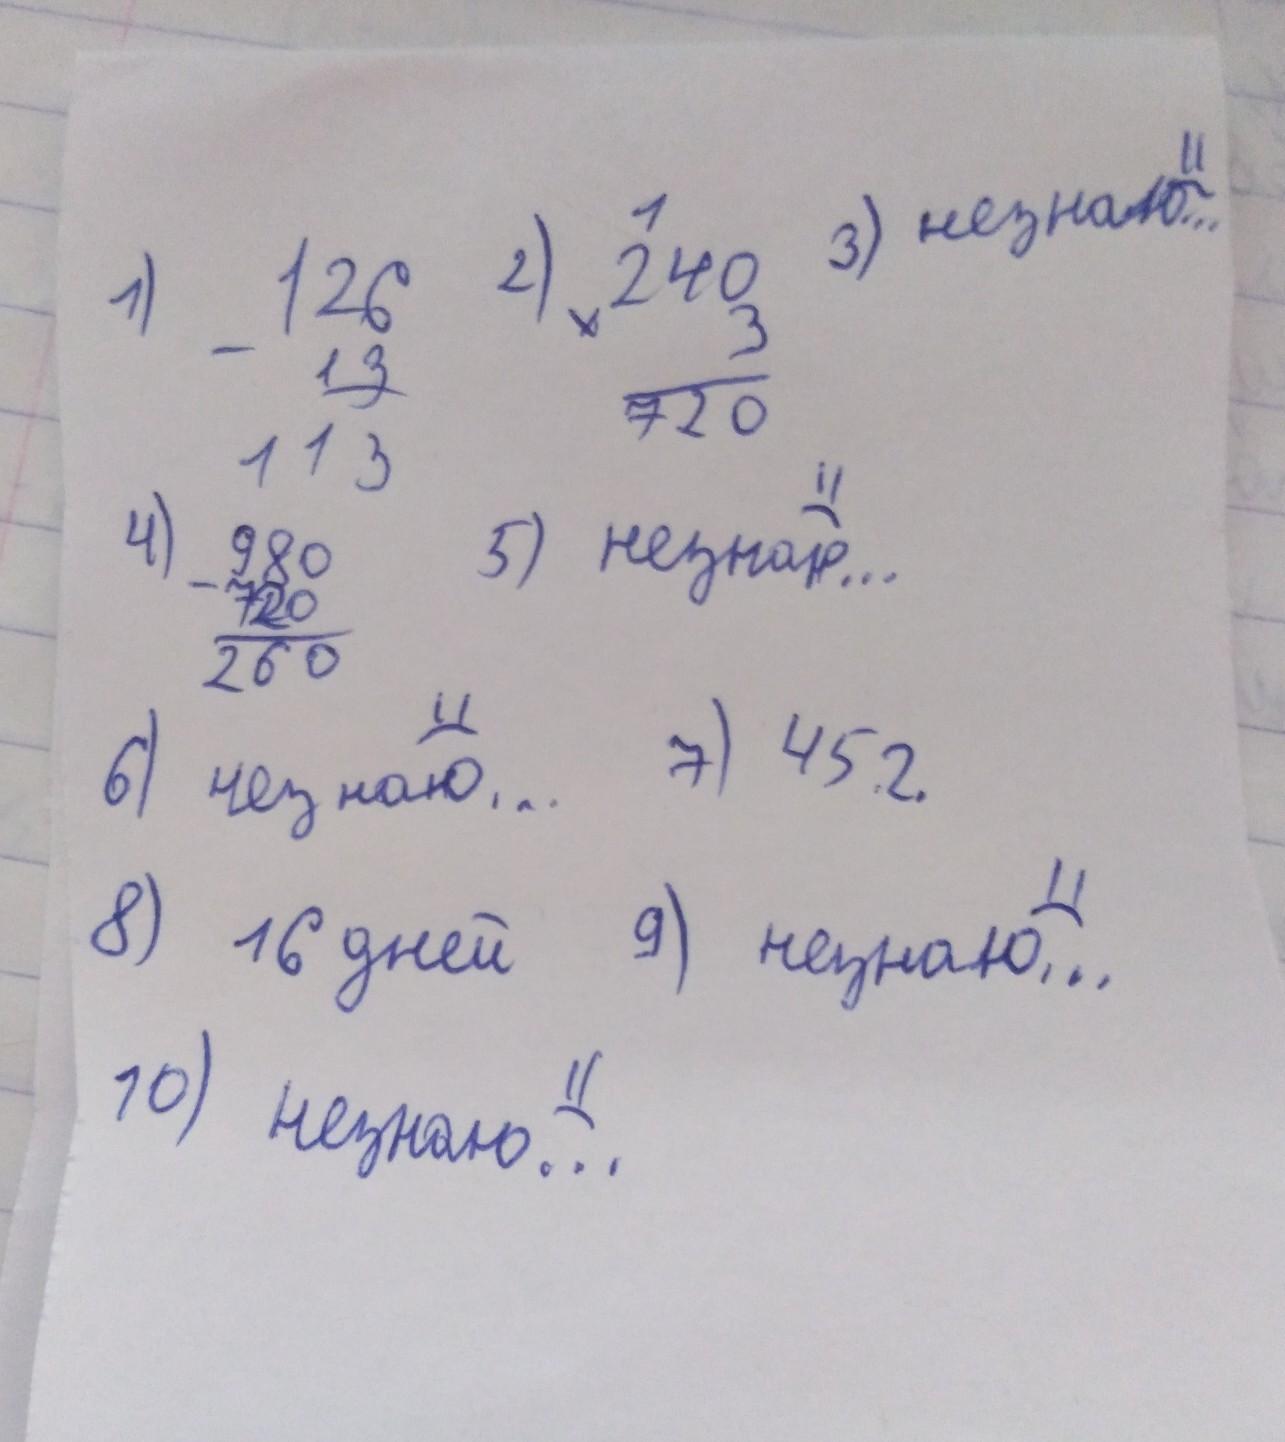 1) - 126
13
113
2) 1
x 240
3
720
3) незнаю...
4) - 980
720
260
5) незнаю...
6) незнаю...
7) 45 г.
8) 16 дней
9) незнаю...
10) незнаю...